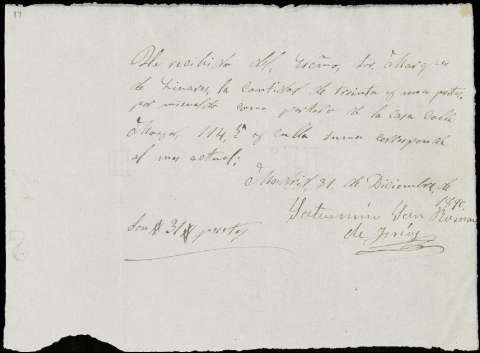 17
He recibido del Excmo, Sor. Marques
de Linares, la cantidad de treinta y una pesetas,
por mi sueldo como portero de la casa calle
Mayor, 114, y cuya suma corresponde
al mes actual;
Madrid 31, de Diciembre, de
Saturnin San Roman
de Frias
Son 31 pesetas